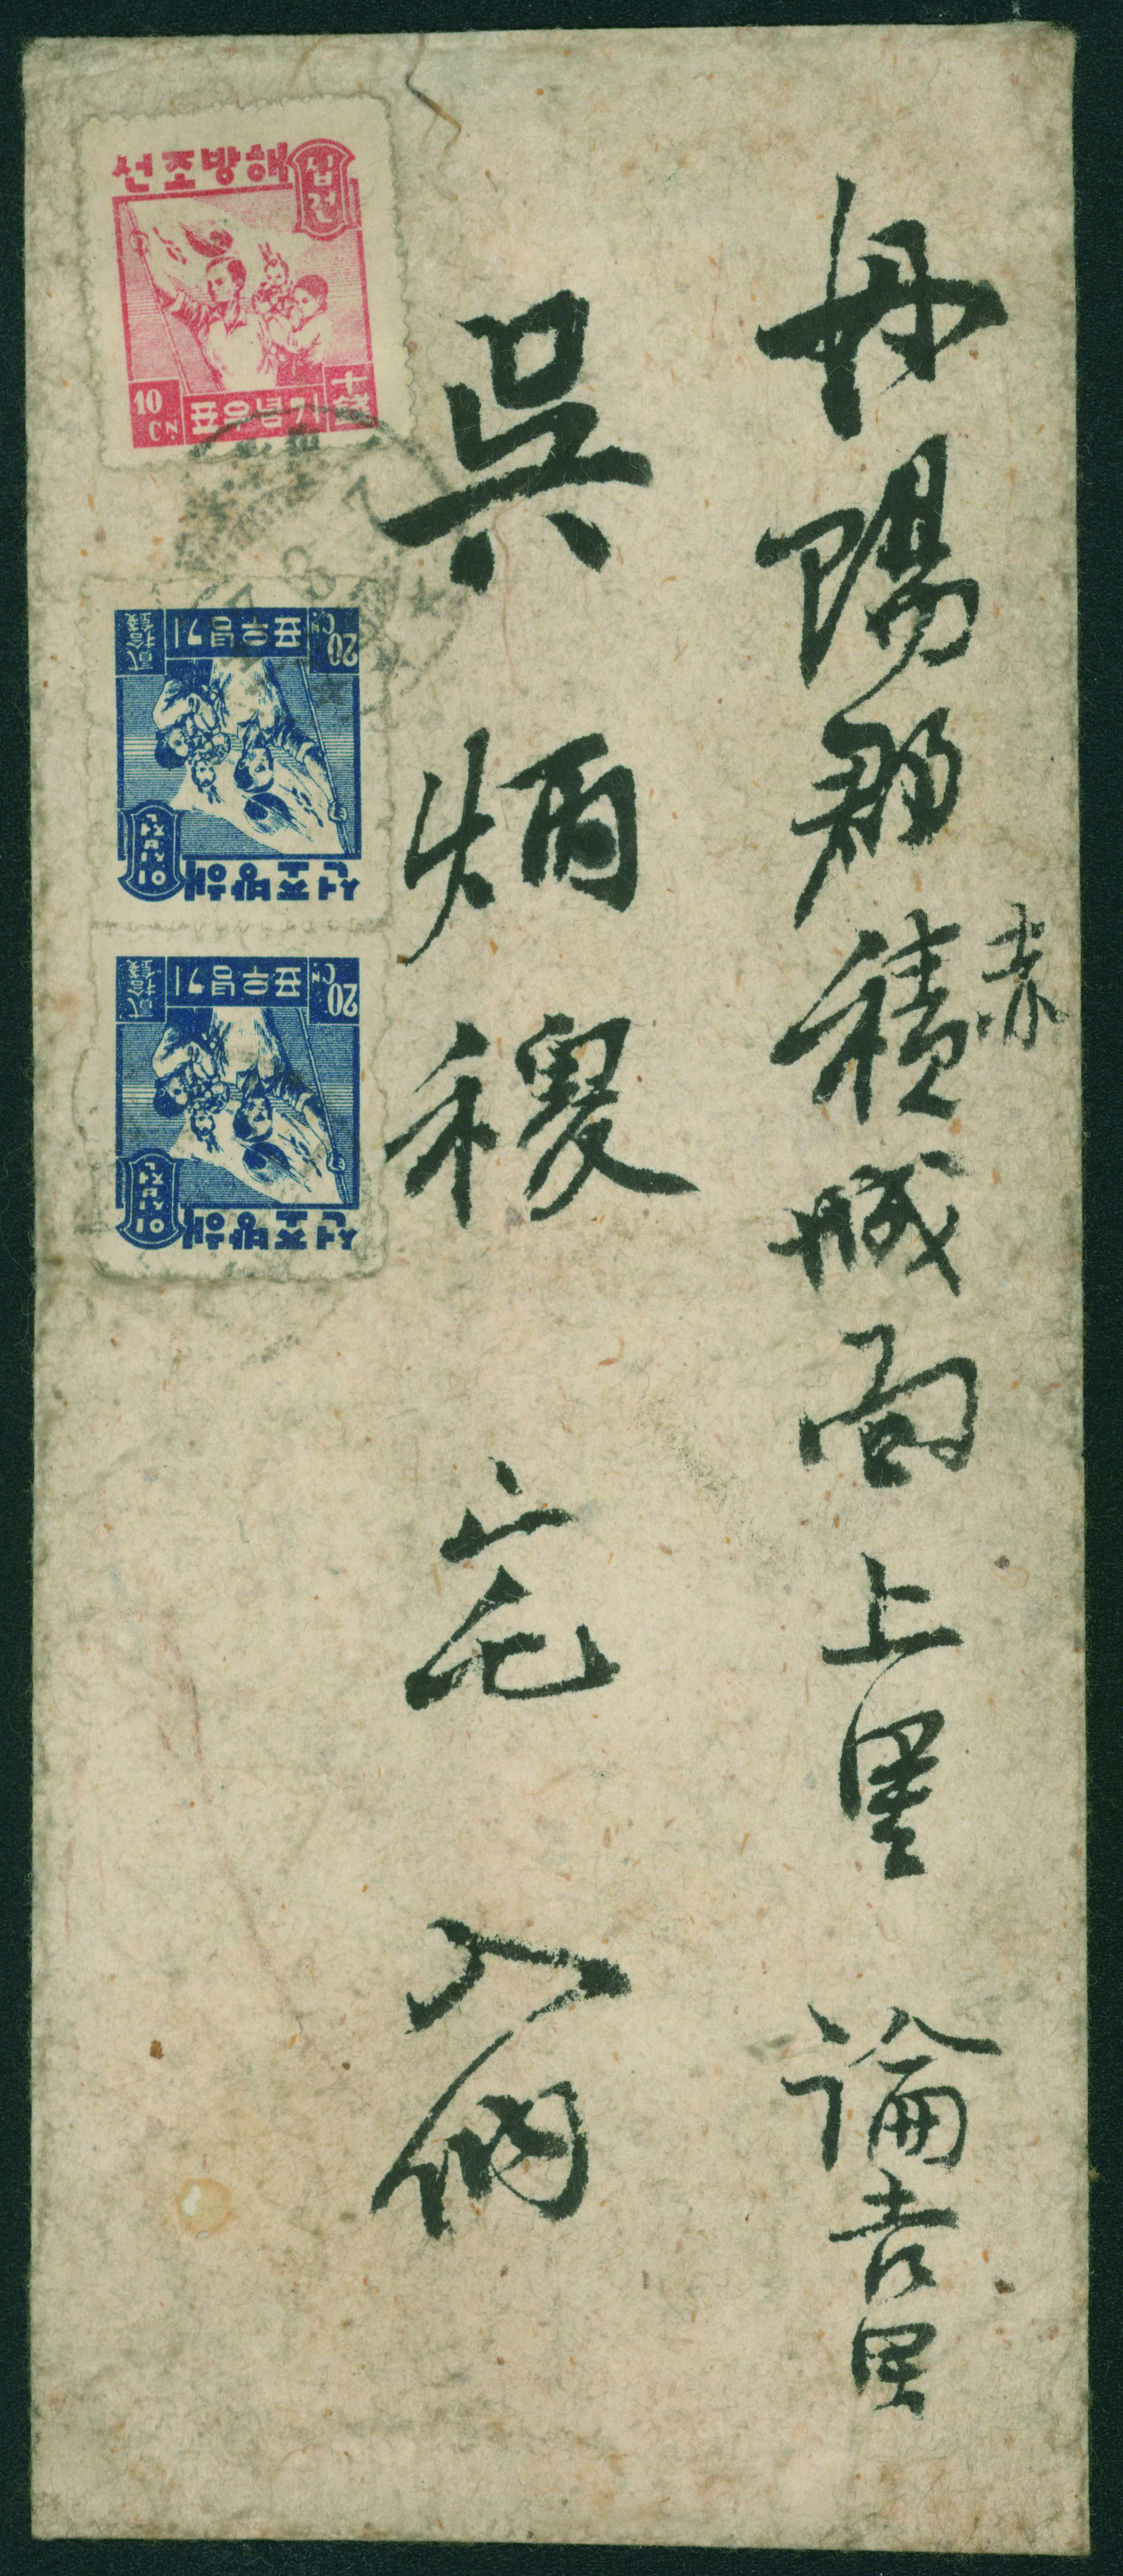 丹陽郡積城面上里 論吉里
赤
吳炳稷 宅 入納
선조방해
십전
10
CN
표우념기
十錢
7
선조방해
이십전
20
CN
표우념기
貳拾錢
선조방해
이십전
20
CN
표우념기
貳拾錢